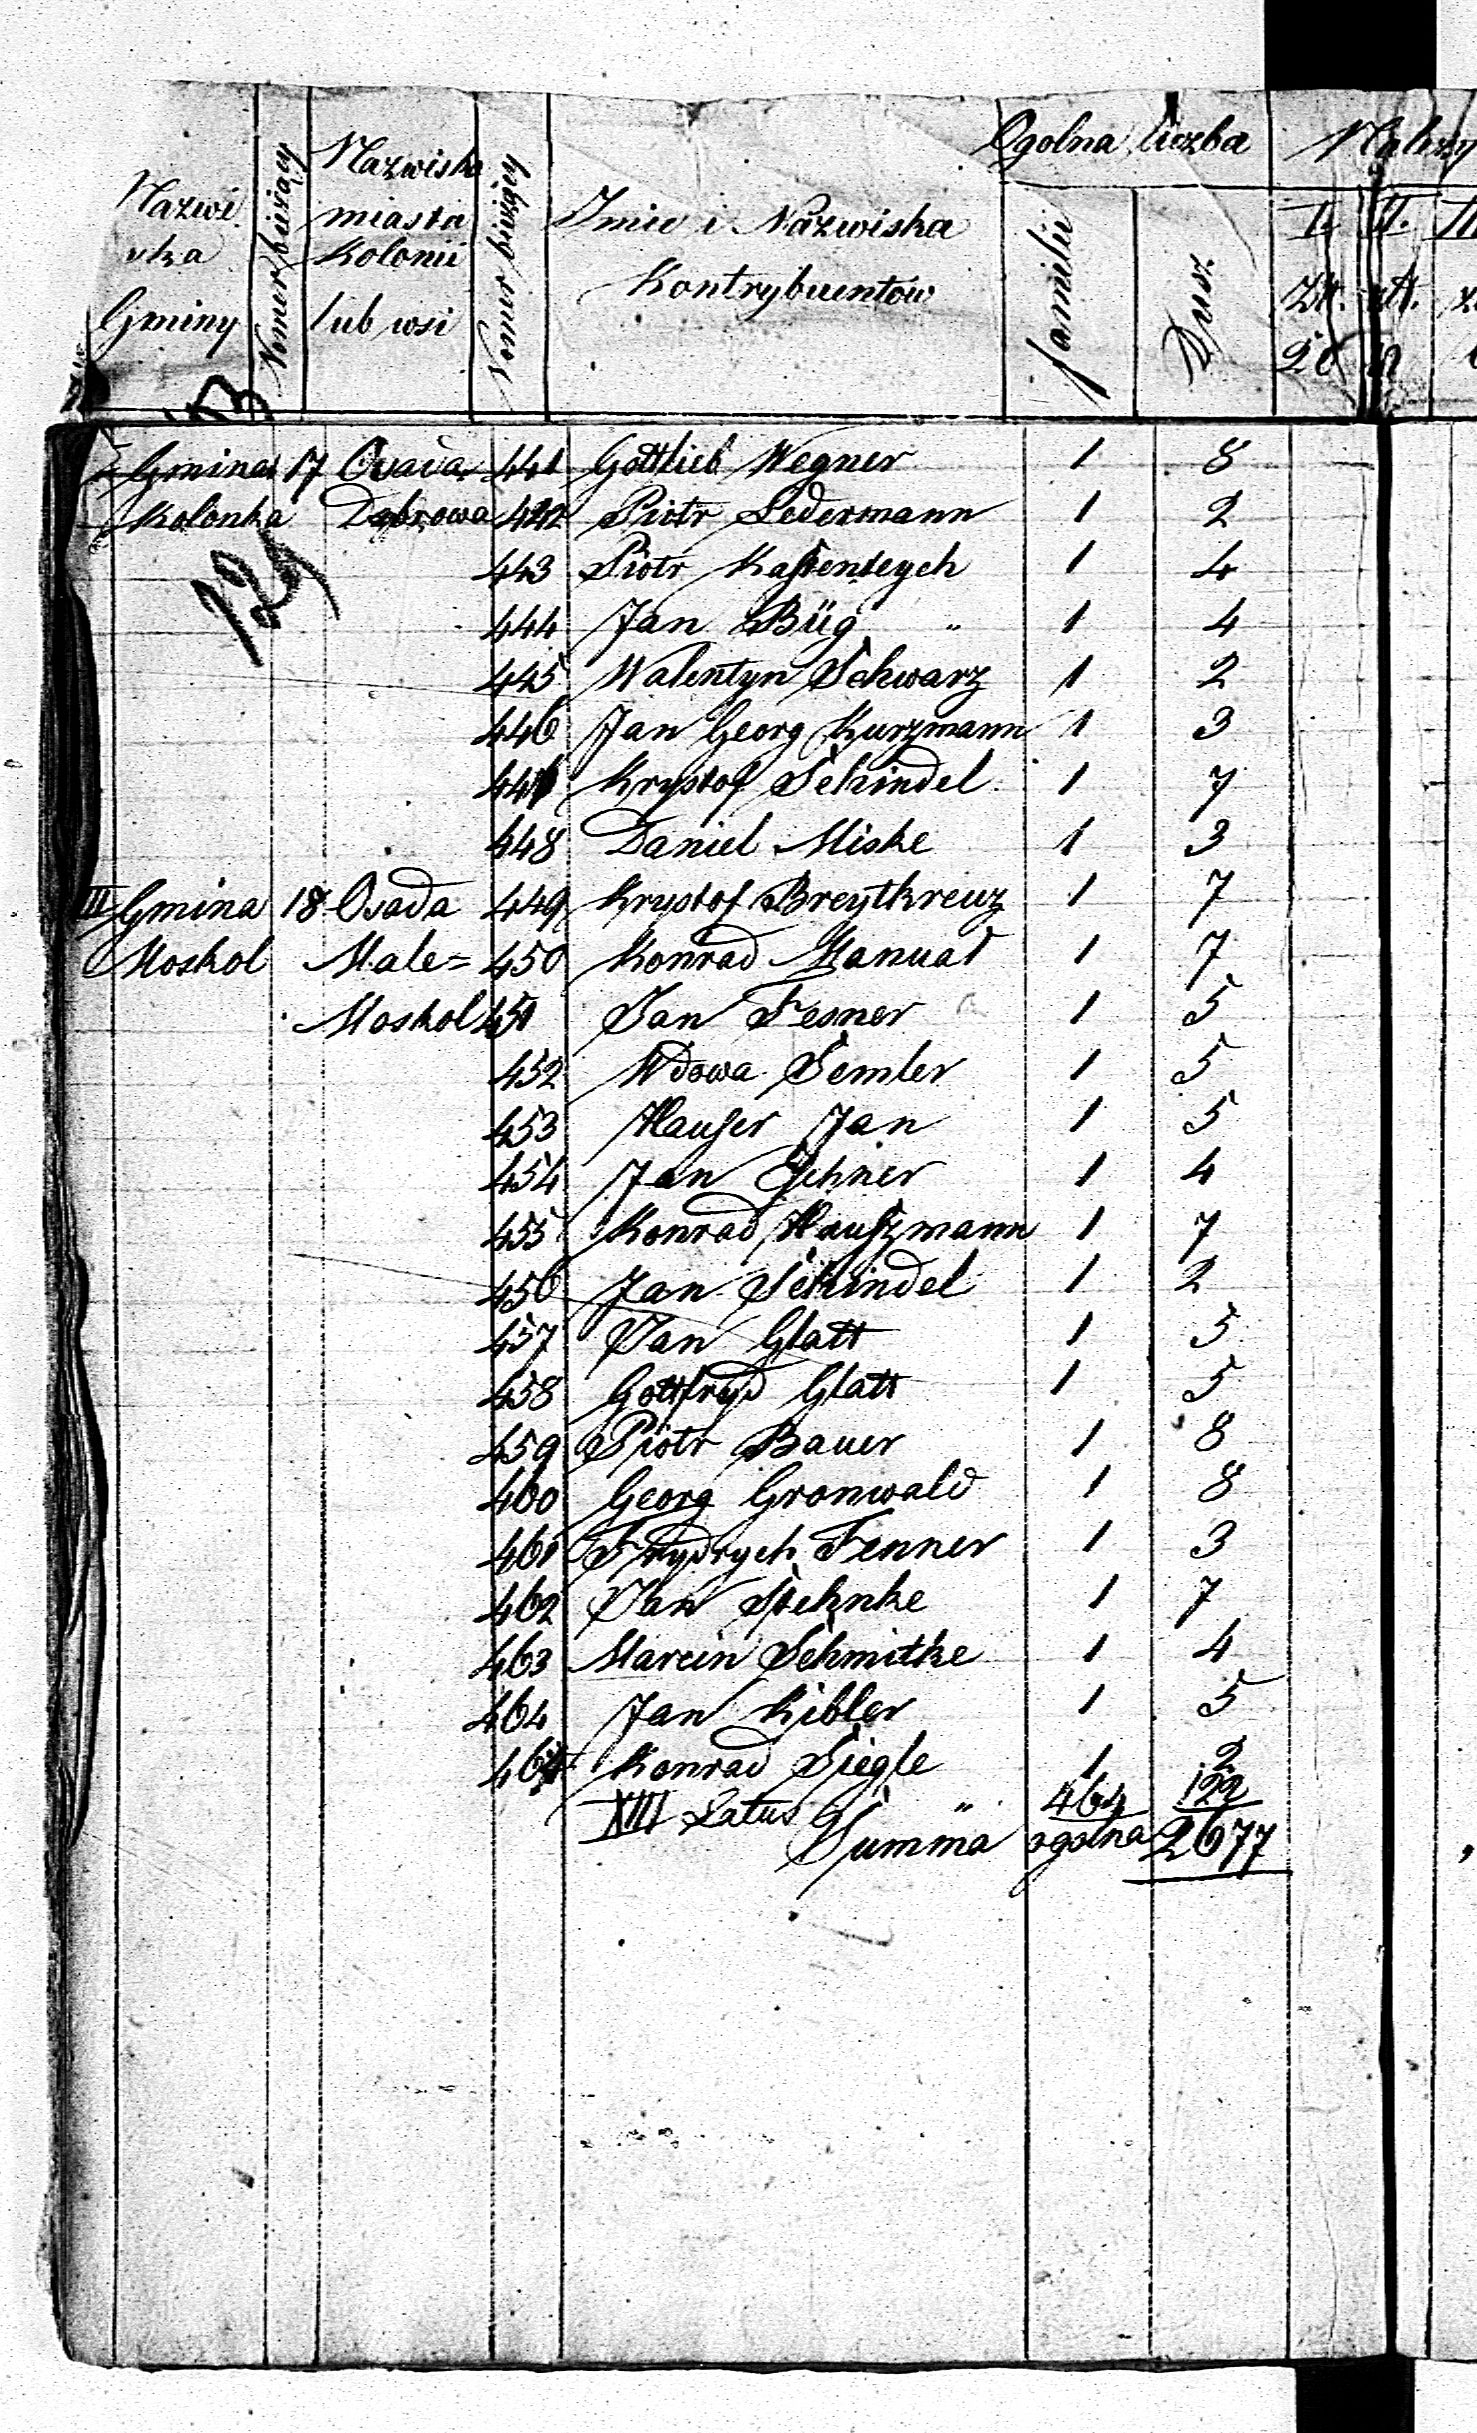 Nazwiska Gminy
Nomer bieżący
Nazwiska miasta Kolonii lub wsi
Nomer bieżący
Imie i Nazwiska Kontrybuentow
Ogolna liczba
familii
Dusz
I. II. III
Zł. zł.
153
Gmina 17 Osada 441 Gottlieb Wegner 1 8
Kolonka Dąbrowa 442 Piotr Ledermann 1 2
129
443 Piotr Kastenteych 1 4
444 Jan Büg " 1 4
445 Walentyn Schwarz 1 2
446 Jan Georg Kurzmann 1 3
447 Krystof Schindel 1 7
448 Daniel Miske 1 3
III Gmina 18 Osada 449 Krystof Breytkreuz 1 7
Moskol Male= 450 Konrad Manual 1 7
Moskol 451 Jan Fesner 1 5
452 Wdowa Semler 1 5
453 Hauser Jan 1 5
454 Jan Ichner 1 4
455 Konrad Hauszmann 1 7
456 Jan Schindel 1 2
457 Jan Glatt 1 5
458 Gottfryd Glatt 1 5
459 Piotr Bauer 1 8
460 Georg Gronwald 1 8
461 Frydrych Fenner 1 3
462 Jan 1 7
463 Marcin Schmitke 1 4
464 Jan Kibler 1 5
464 Konrad Siegle 1 2
XIII Latus " 464 122
Summa ogolna 2677